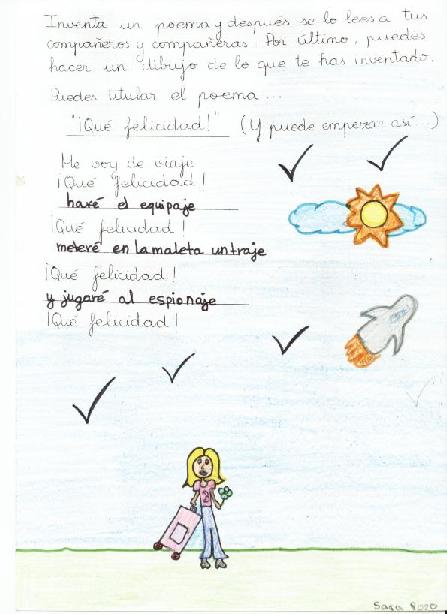 Inventa un poema y después se lo lees a tus
compañeros y compañeras. Por último, puedes
hacer un dibujo de lo que te has inventado.
Puedes titular el poema...
"¡Qué felicidad!" (Y puede empezar así...)
Me voy de viaje
¡Qué felicidad!
haré el equipaje
¡Qué felicidad!
meteré en la maleta un traje
¡Qué felicidad!
y jugaré al espionaje
¡Qué felicidad!
Sara